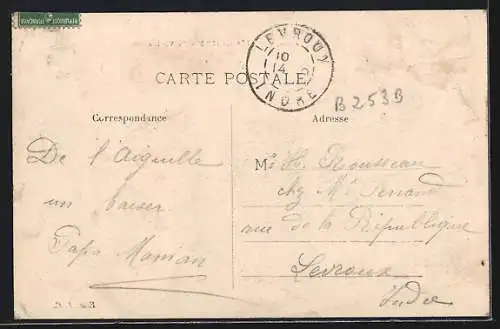 REPUBLIQUE FRANÇAISE
LEVROUX
10
14
INDRE
CARTE POSTALE
B 253B
Correspondance
Adresse
De l'Aiguille
un baiser
Papa Maman
Mr H. Rousseau
chez Mr
rue de la République
Levroux
Indre